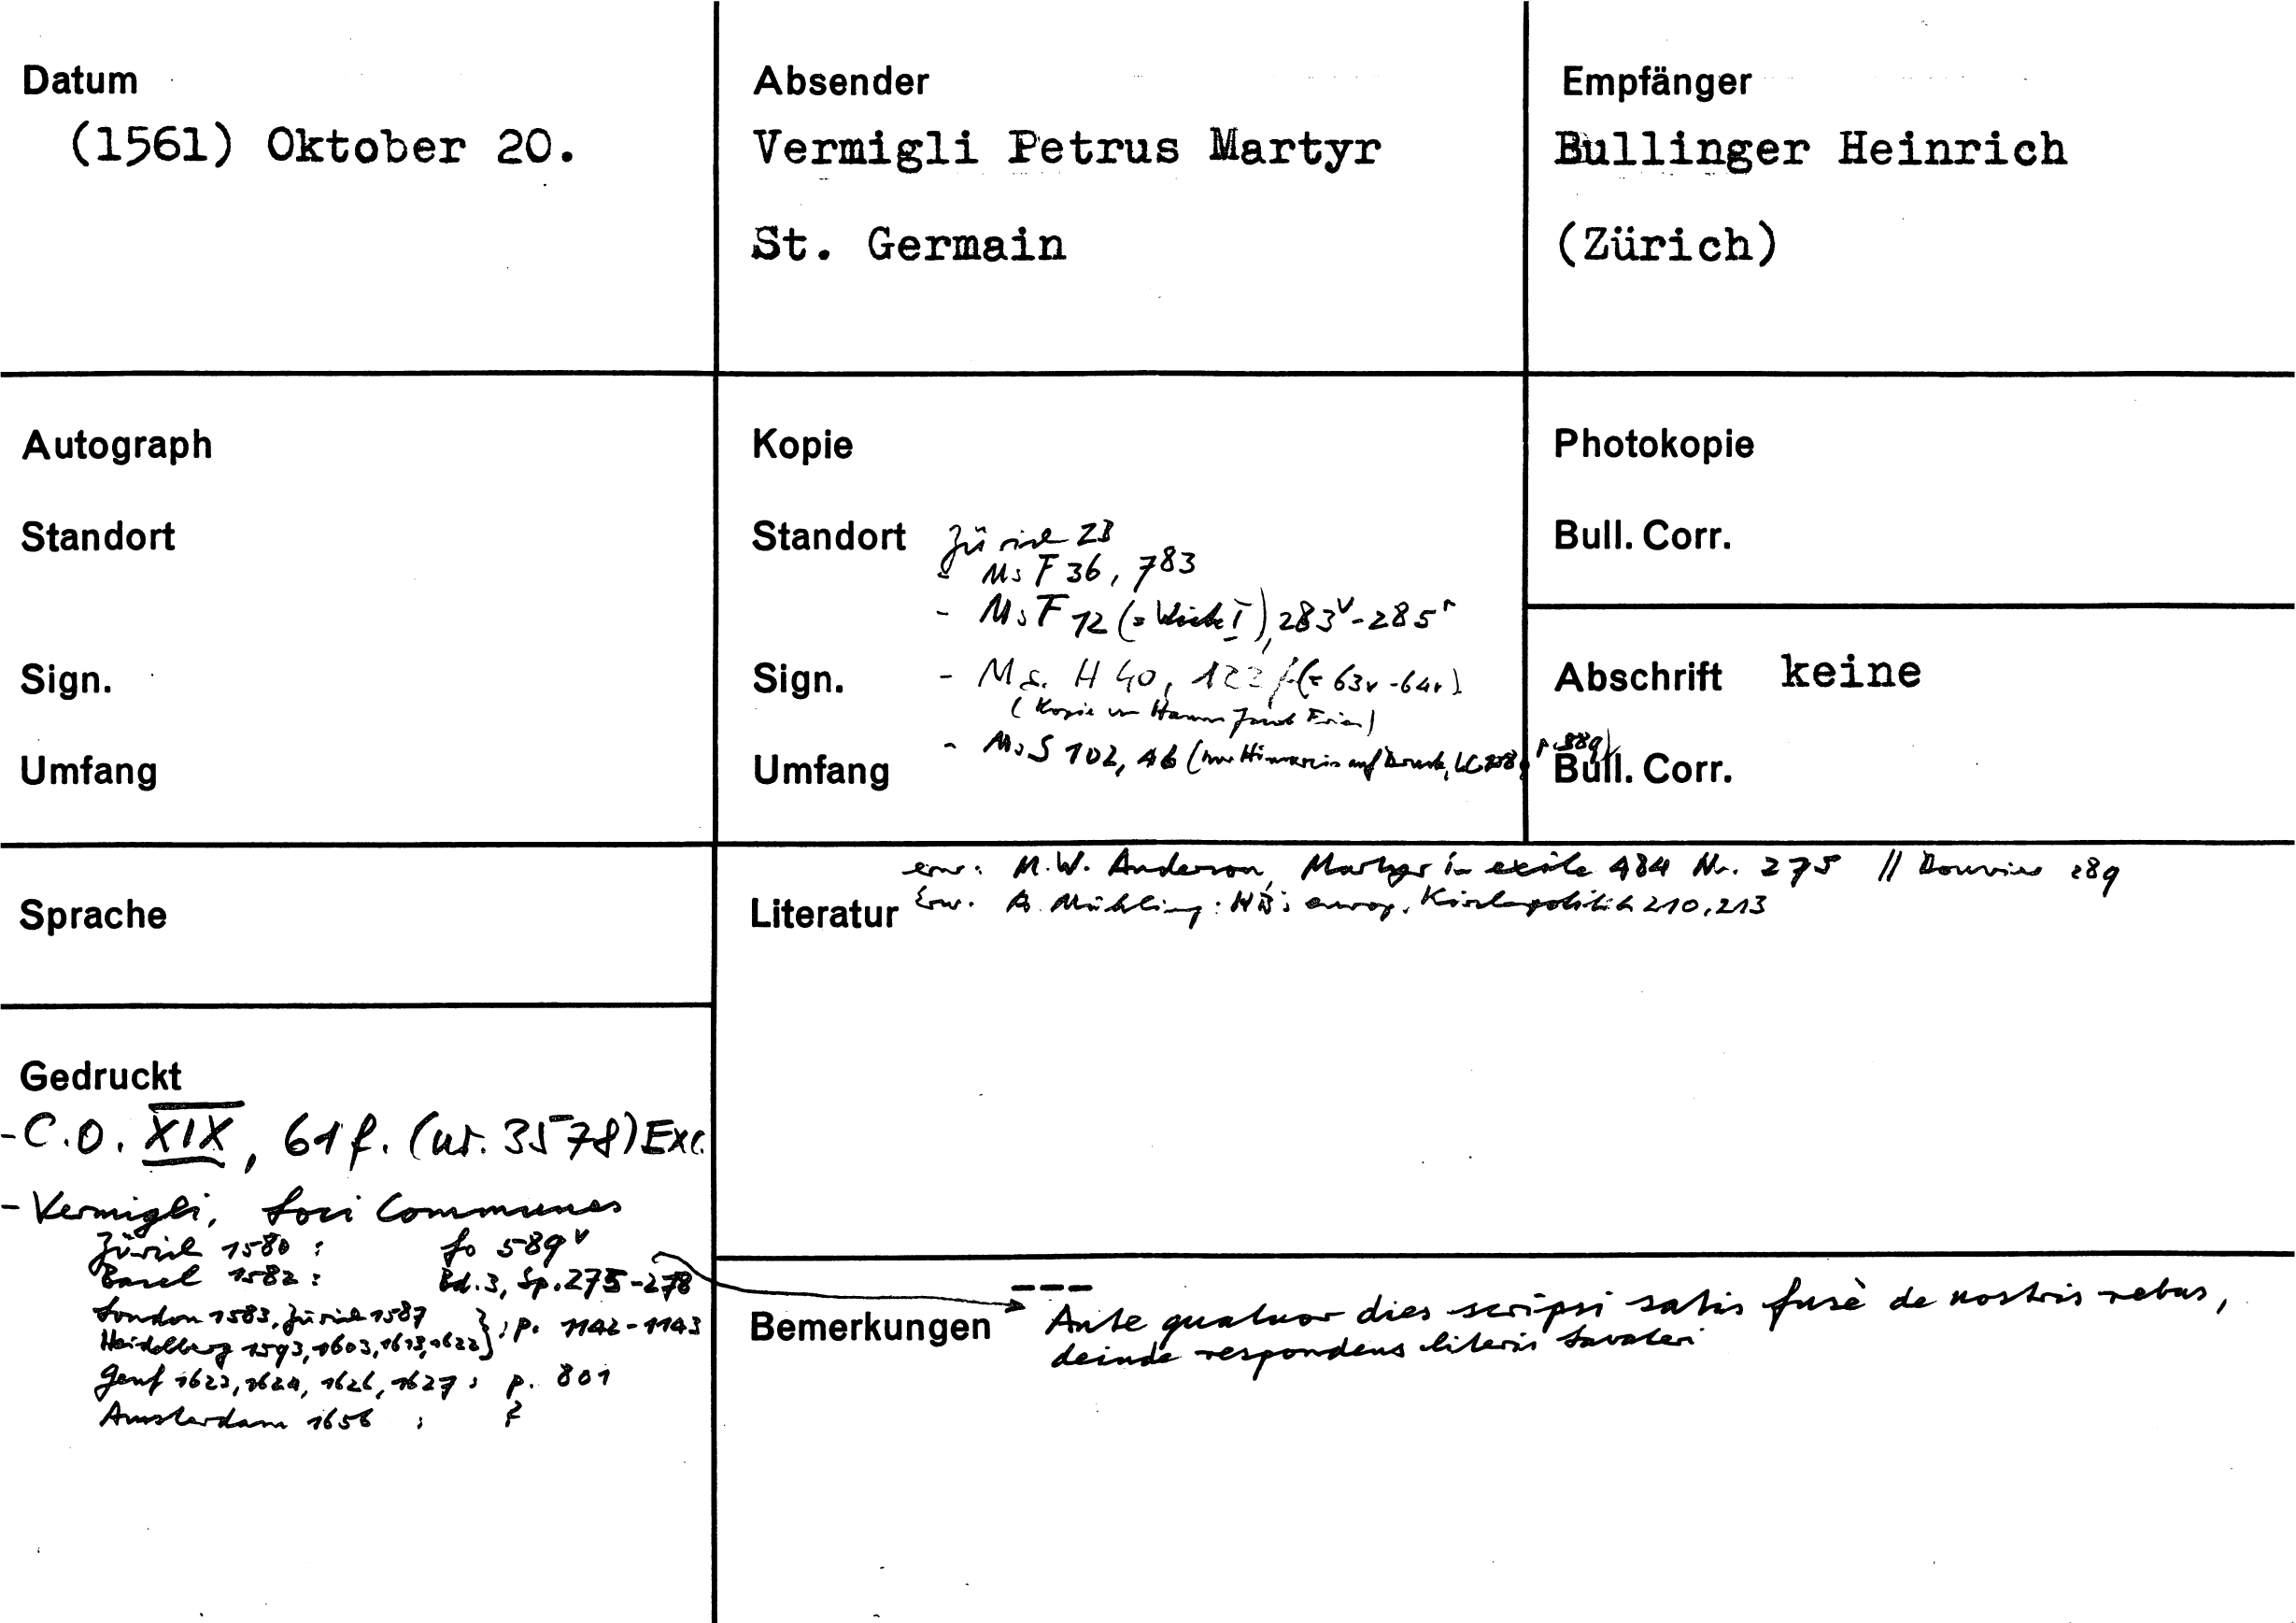 Datum
(1561) Oktober 20.
Absender
Vermigli Petrus Martyr
St. Germain
Empfänger
Bullinger Heinrich
(Zürich)
Autograph
Standort
Sign.
Umfang
Kopie
Standort Zürich ZB
- Ms F 36, 783
- Ms F 12 (= Wick I), 283v-285r
Sign. - Ms. H 40, 122 f (= 63v-64r)
(Kopie von Hanns Jacob Fries)
Umfang - Ms S 102, 46 (nur Hinweis auf Druck, LC p. 589)
Photokopie
Bull. Corr.
Abschrift keine
Bull. Corr.
Sprache
Literatur
erw: M.W. Anderson, Martyr in exile 484 Nr. 275 // Donvine 289
Erw. A. Mühling: HB's europ. Kirchenpolitik 210, 213
Gedruckt
- C.O. XIX, 61 f. (nr. 3578) Exc.
- Vermigli, Loci Communes
Zürich 1580 : fo 589v
Basel 1582 : Bd. 3, Sp. 275-278
London 1583, Zürich 1587
Heidelberg 1593, 1603, 1613, 1622 } : p. 1142-1143
Genf 1623, 1624, 1626, 1627 : p. 801
Amsterdam 1656 : ?
Bemerkungen
--- Ante quatuor dies scripsi satis fusè de nostris rebus,
deinde respondens literis Lavateri